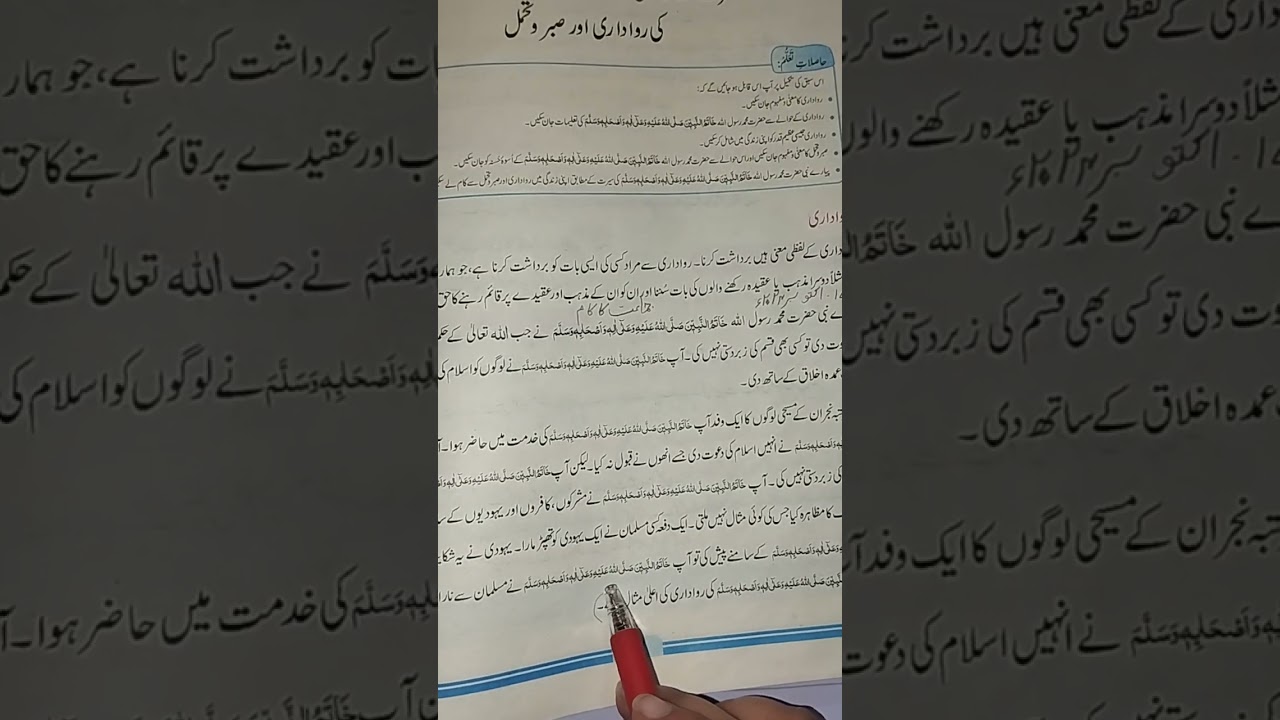 کی رواداری اور صبر و تحمل
حاصلاتِ تَعَلُّم:
اس سبق کی تکمیل پر آپ اس قابل ہو جائیں گے کہ:
رواداری کا معنیٰ و مفہوم جان سکیں۔
رواداری کے حوالے سے حضرت محمد رسول اللہ خَاتَمُ النَّبِیّٖنَ صَلَّی اللہُ عَلَیْہِ وَعَلٰٓی اٰلِہٖ وَاَصْحَابِہٖ وَسَلَّمَ کی تعلیمات جان سکیں۔
رواداری جیسی عظیم قدر کو اپنی زندگی میں شامل کر سکیں۔
صبر و تحمل کا معنیٰ و مفہوم جان سکیں اور اس حوالے سے حضرت محمد رسول اللہ خَاتَمُ النَّبِیّٖنَ صَلَّی اللہُ عَلَیْہِ وَعَلٰٓی اٰلِہٖ وَاَصْحَابِہٖ وَسَلَّمَ کے اُسوۂ حَسَنہ کو جان سکیں۔
پیارے نبی حضرت محمد رسول اللہ خَاتَمُ النَّبِیّٖنَ صَلَّی اللہُ عَلَیْہِ وَعَلٰٓی اٰلِہٖ وَاَصْحَابِہٖ وَسَلَّمَ کی سیرت کے مطابق اپنی زندگی میں رواداری اور صبر و تحمل سے کام لے سک
واداری
داری کے لفظی معنی ہیں برداشت کرنا۔ رواداری سے مراد کسی کی ایسی بات کو برداشت کرنا ہے، جو ہمار
مثلاً دوسرا مذہب یا عقیدہ رکھنے والوں کی بات سُننا اور ان کو ان کے مذہب اور عقیدے پر قائم رہنے کا حق
جماعت کا کام
ے نبی حضرت محمد رسول اللہ خَاتَمُ النَّبِیّٖنَ صَلَّی اللہُ عَلَیْہِ وَعَلٰٓی اٰلِہٖ وَاَصْحَابِہٖ وَسَلَّمَ نے جب اللہ تعالیٰ کے حکم
وت دی تو کسی بھی قسم کی زبردستی نہیں کی۔ آپ خَاتَمُ النَّبِیّٖنَ صَلَّی اللہُ عَلَیْہِ وَعَلٰٓی اٰلِہٖ وَاَصْحَابِہٖ وَسَلَّمَ نے لوگوں کو اسلام کی
عمدہ اخلاق کے ساتھ دی۔
تبہ نجران کے مسیحی لوگوں کا ایک وفد آپ خَاتَمُ النَّبِیّٖنَ صَلَّی اللہُ عَلَیْہِ وَعَلٰٓی اٰلِہٖ وَاَصْحَابِہٖ وَسَلَّمَ کی خدمت میں حاضر ہوا۔ آ
وَاَصْحَابِہٖ وَسَلَّمَ نے انہیں اسلام کی دعوت دی جسے انھوں نے قبول نہ کیا۔ لیکن آپ خَاتَمُ النَّبِیّٖنَ صَلَّی اللہُ عَلَیْہِ وَعَلٰٓی اٰلِہٖ وَاَصْحَا
کی زبردستی نہیں کی۔ آپ خَاتَمُ النَّبِیّٖنَ صَلَّی اللہُ عَلَیْہِ وَعَلٰٓی اٰلِہٖ وَاَصْحَابِہٖ وَسَلَّمَ نے مشرکوں، کافروں اور یہودیوں کے سا
ک کا مظاہرہ کیا جس کی کوئی مثال نہیں ملتی۔ ایک دفعہ کسی مسلمان نے ایک یہودی کو تھپڑ مارا۔ یہودی نے یہ شکای
وَعَلٰٓی اٰلِہٖ وَاَصْحَابِہٖ وَسَلَّمَ کے سامنے پیش کی تو آپ خَاتَمُ النَّبِیّٖنَ صَلَّی اللہُ عَلَیْہِ وَعَلٰٓی اٰلِہٖ وَاَصْحَابِہٖ وَسَلَّمَ نے مسلمان سے نارا
النَّبِیّٖنَ صَلَّی اللہُ عَلَیْہِ وَعَلٰٓی اٰلِہٖ وَاَصْحَابِہٖ وَسَلَّمَ کی رواداری کی اعلیٰ مثال